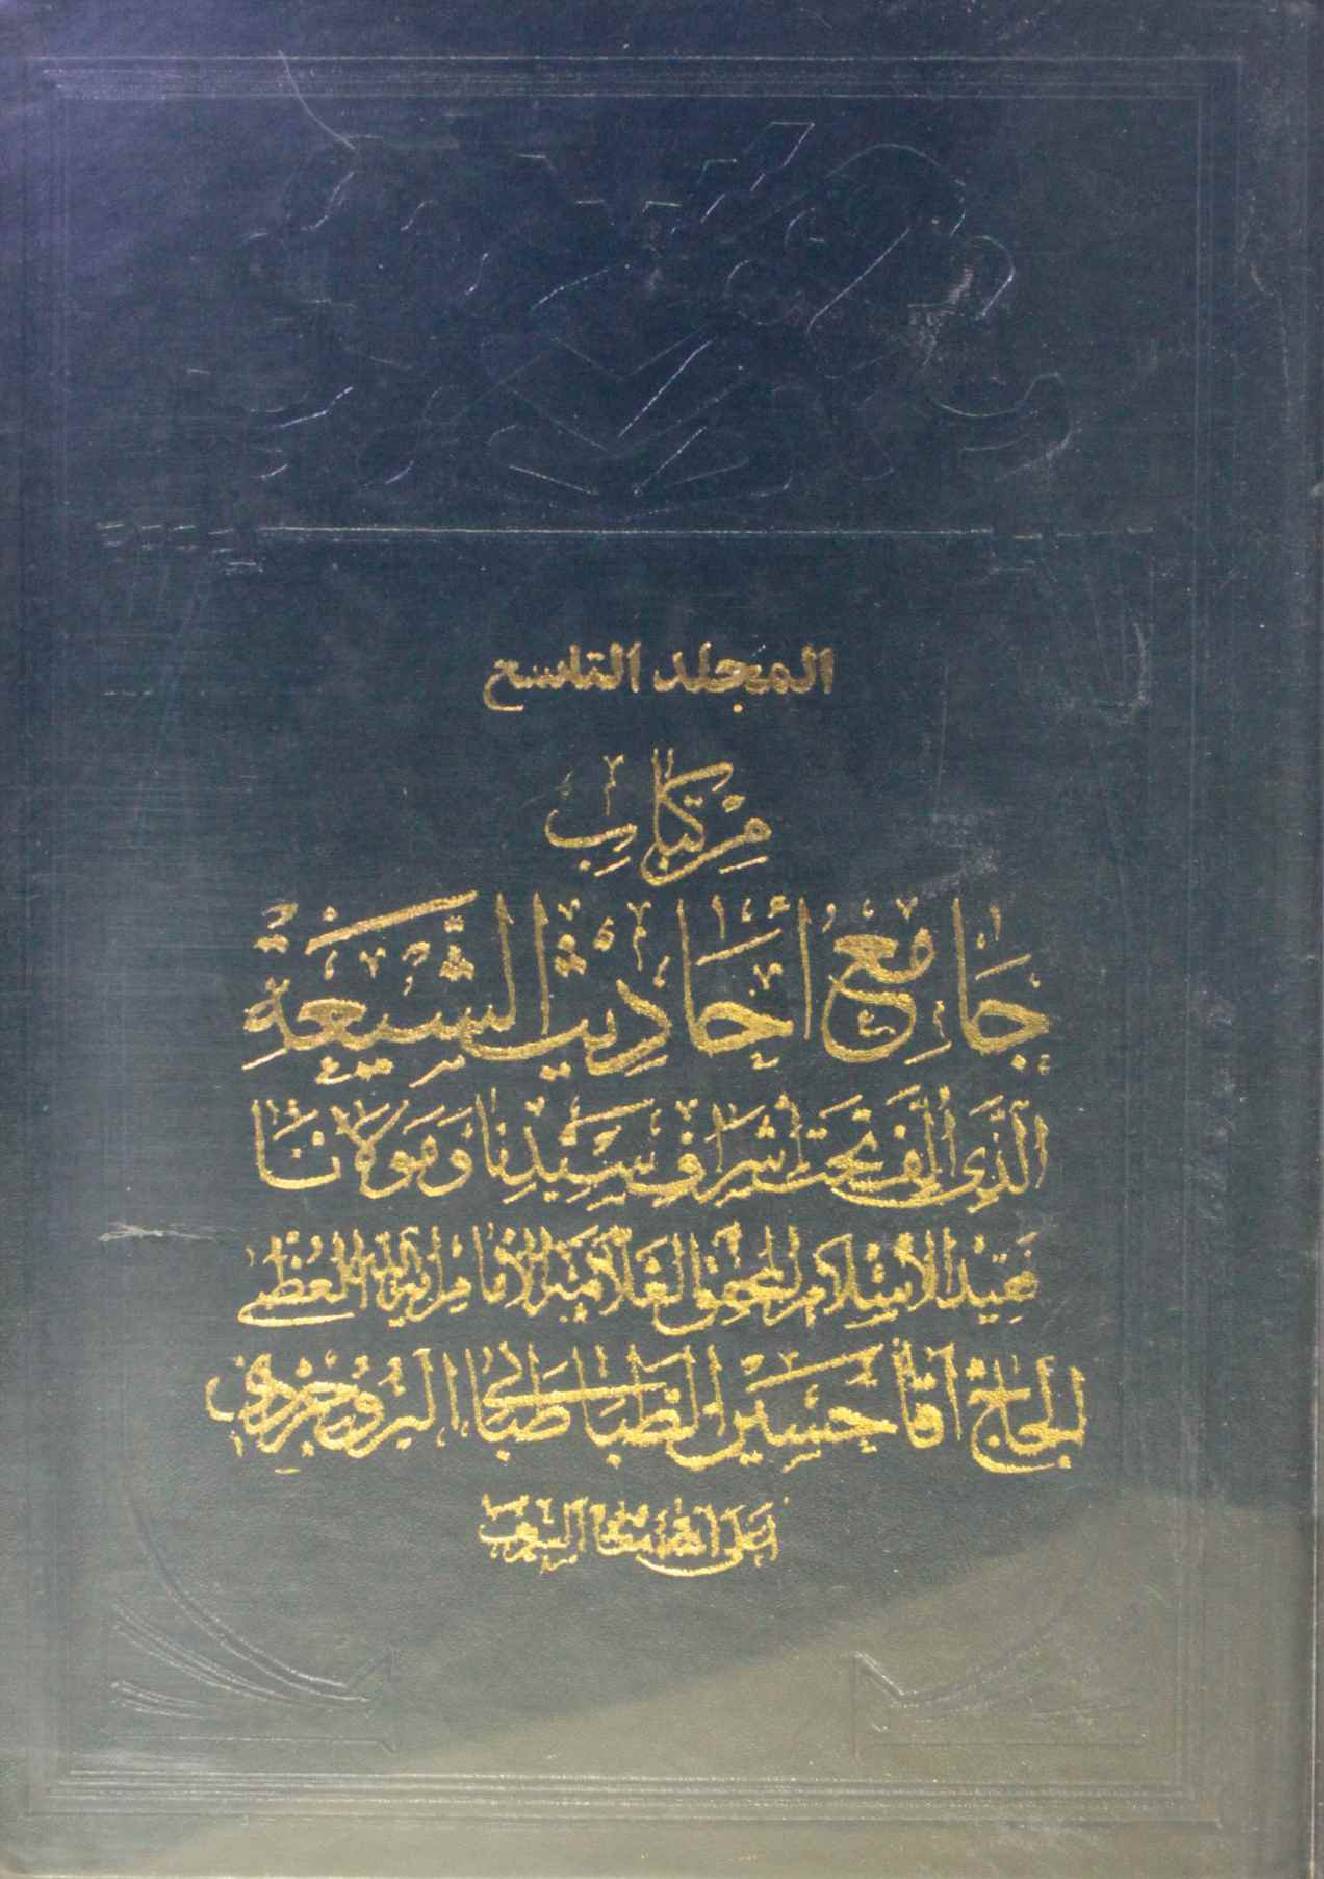 المجلد التاسع
من كتاب
جامع أحاديث الشيعة
الذي ألف تحت إشراف سيدنا ومولانا
فقيد الإسلام المحقق العلامة الإمام آية الله العظمى
الحاج آقا حسين الطباطبائي البروجردي
أعلى الله مقامه الشريف